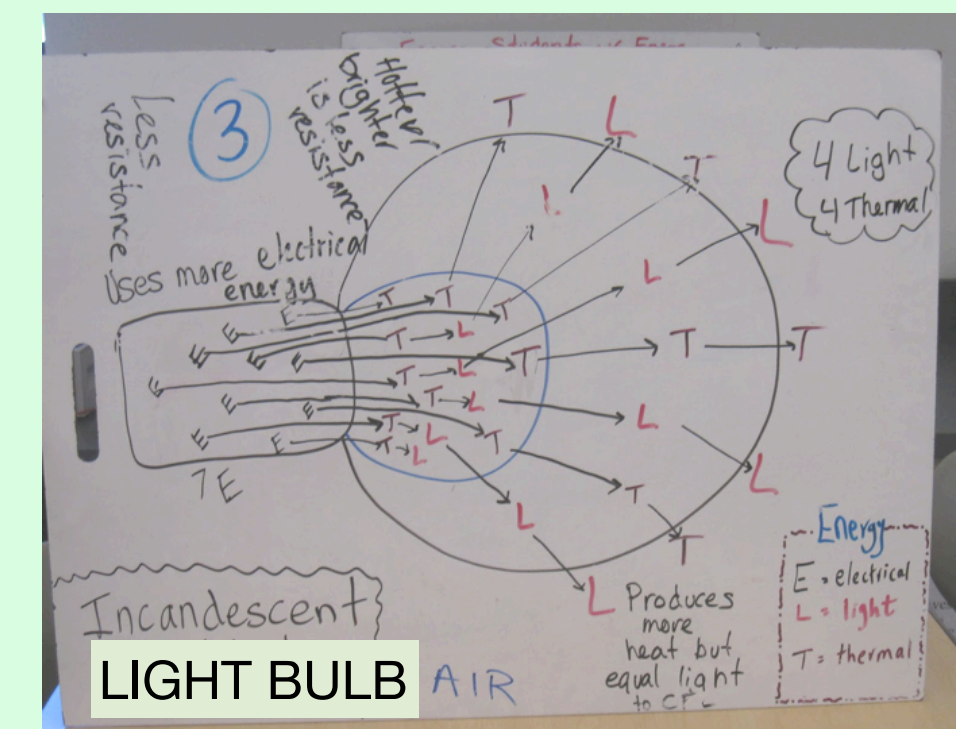 Students
Less
resistance
3
Hotter
brighter
is less
resistance
Uses more electrical
energy
T
L
T
L
L
L
T
T
L
L
T
T
L
L
4 Light
4 Thermal
E T T
E T
E T L
E E T
E L
E T
E T L
E E T L
E T L
E T L
7E
Incandescent
LIGHT BULB
AIR
Produces
more
heat but
equal light
to CFL
Energy
E = electrical
L = light
T = thermal